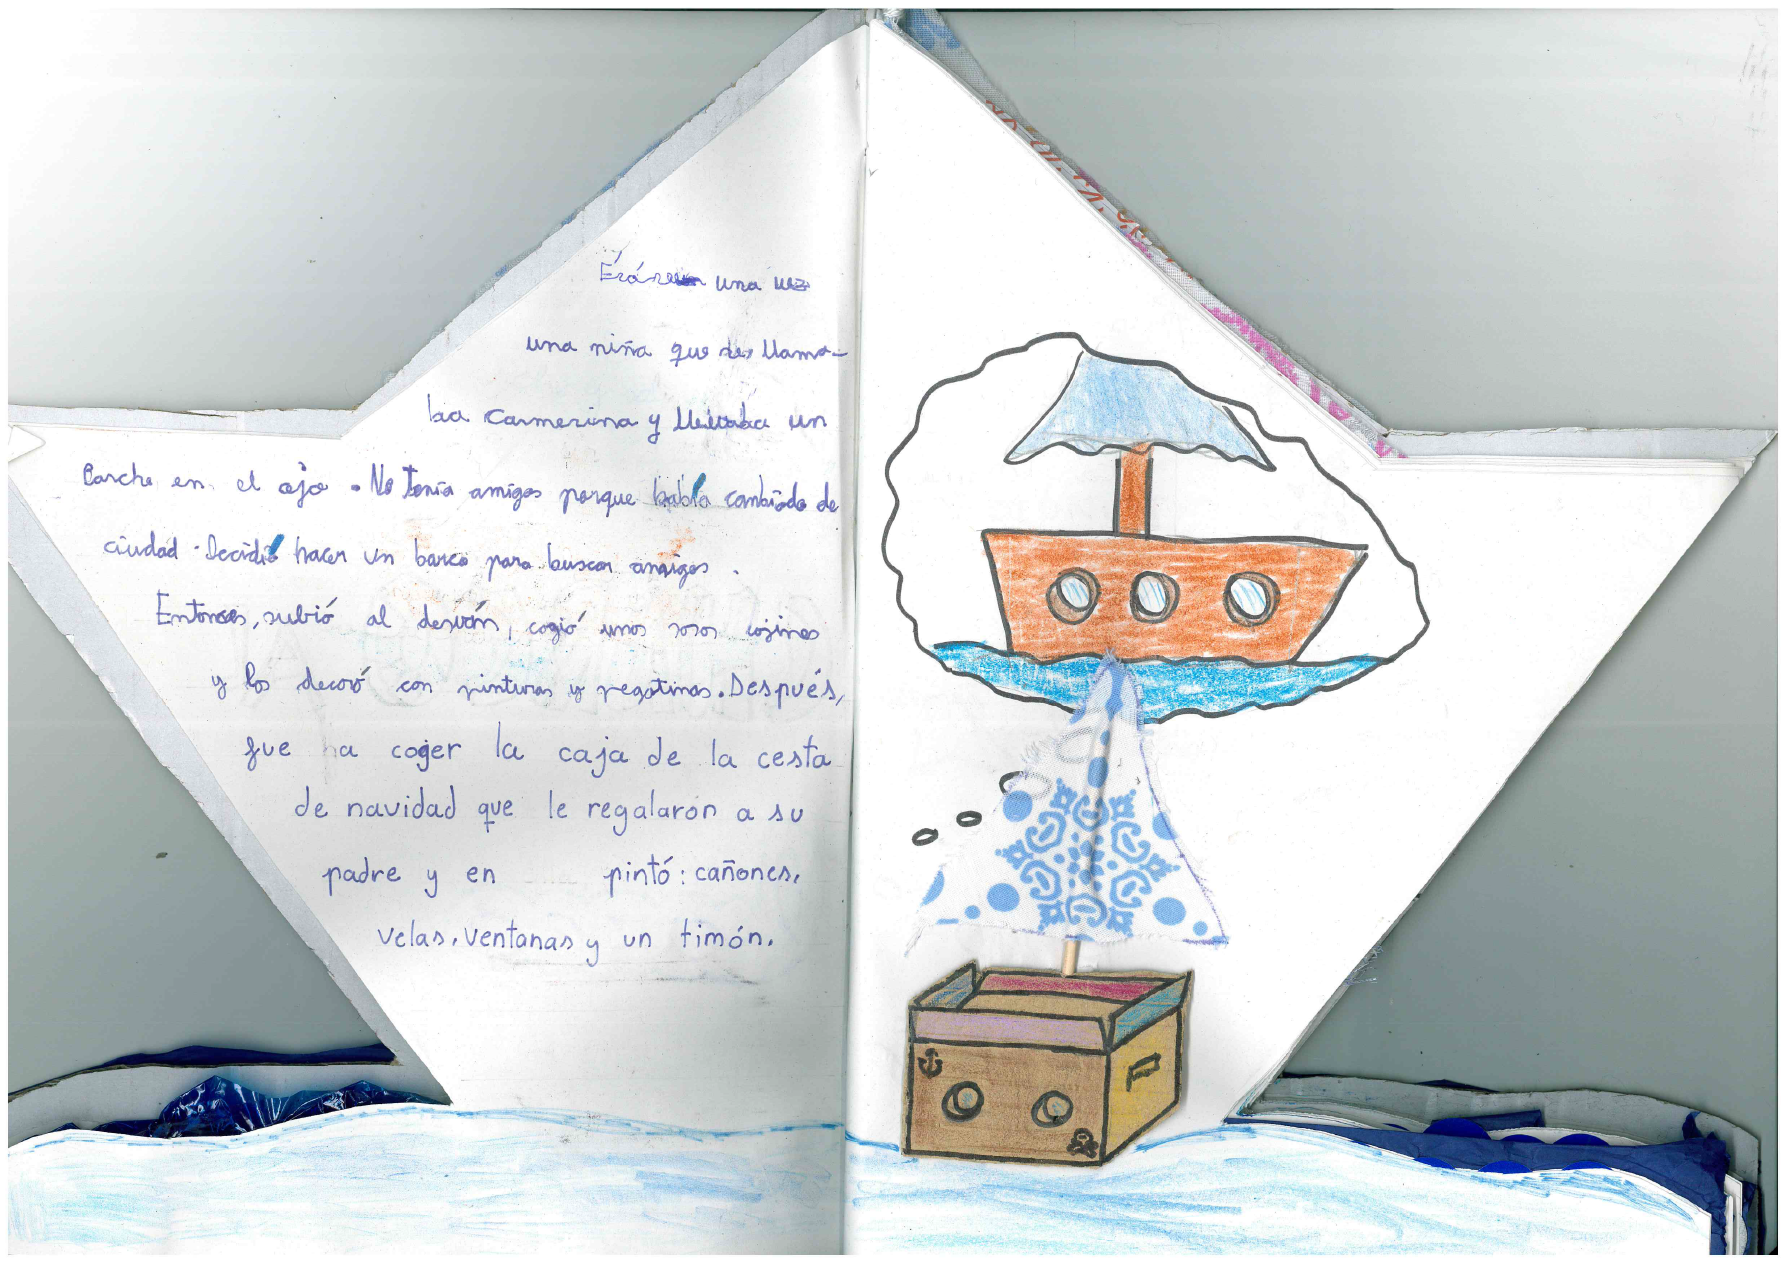 una vez
una niña que se llama-
ba Carmerina y llevaba un
Parche en el ojo. No Tenía amigos porque había cambiado de
ciudad. Decidió hacer un barco para buscar amigos.
Entonces, subió al desván, cogió unos cojines
y los decoró con pinturas y pegatinas. Después,
fue ha coger la caja de la cesta
de navidad que le regalarón a su
padre y en pintó: cañones,
velas, ventanas y un timón.